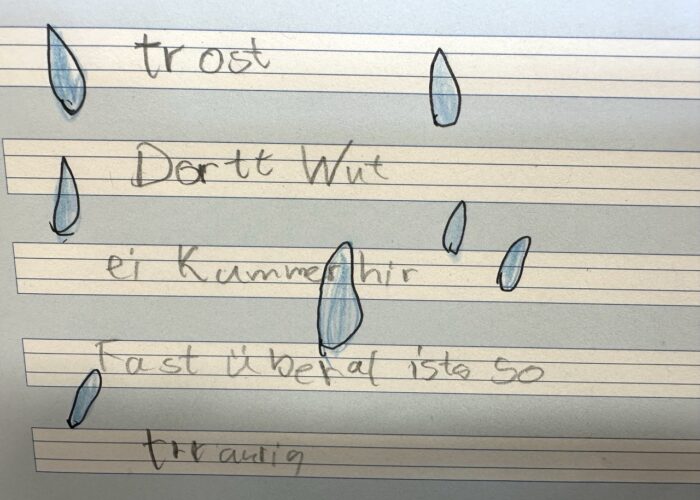 trost
Dortt Wut
ei Kummer hir
Fast überal ists so
trraurig